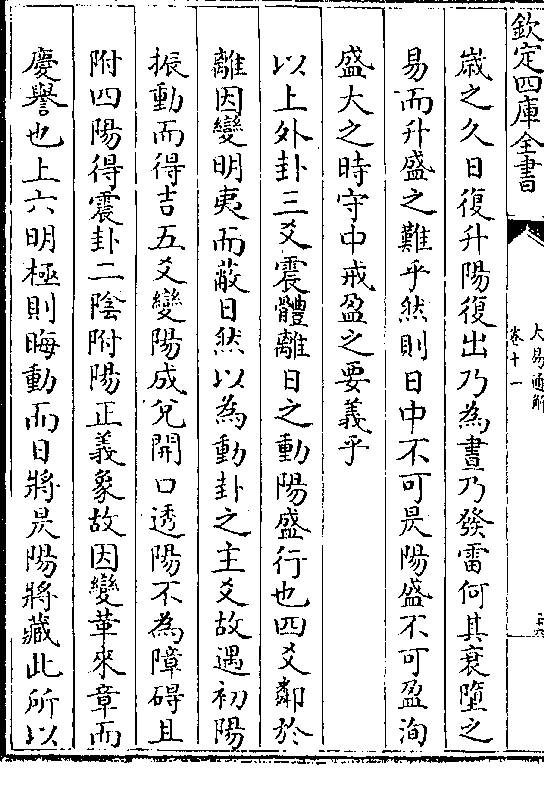 欽定四庫全書
大易通解
卷十一
歳之久日復升陽復出乃為晝乃發雷何其衰墮之
易而升盛之難乎然則日中不可昃陽盛不可盈洵
盛大之時守中戒盈之要義乎
以上外卦三爻震體離日之動陽盛行也四爻鄰於
離因變明夷而蔽日然以為動卦之主爻故遇初陽
振動而得吉五爻變陽成兌開口透陽不為障碍且
附四陽得震卦二陰附陽正義象故因變革來章而
慶譽也上六明極則晦動而日將昃陽將藏此所以